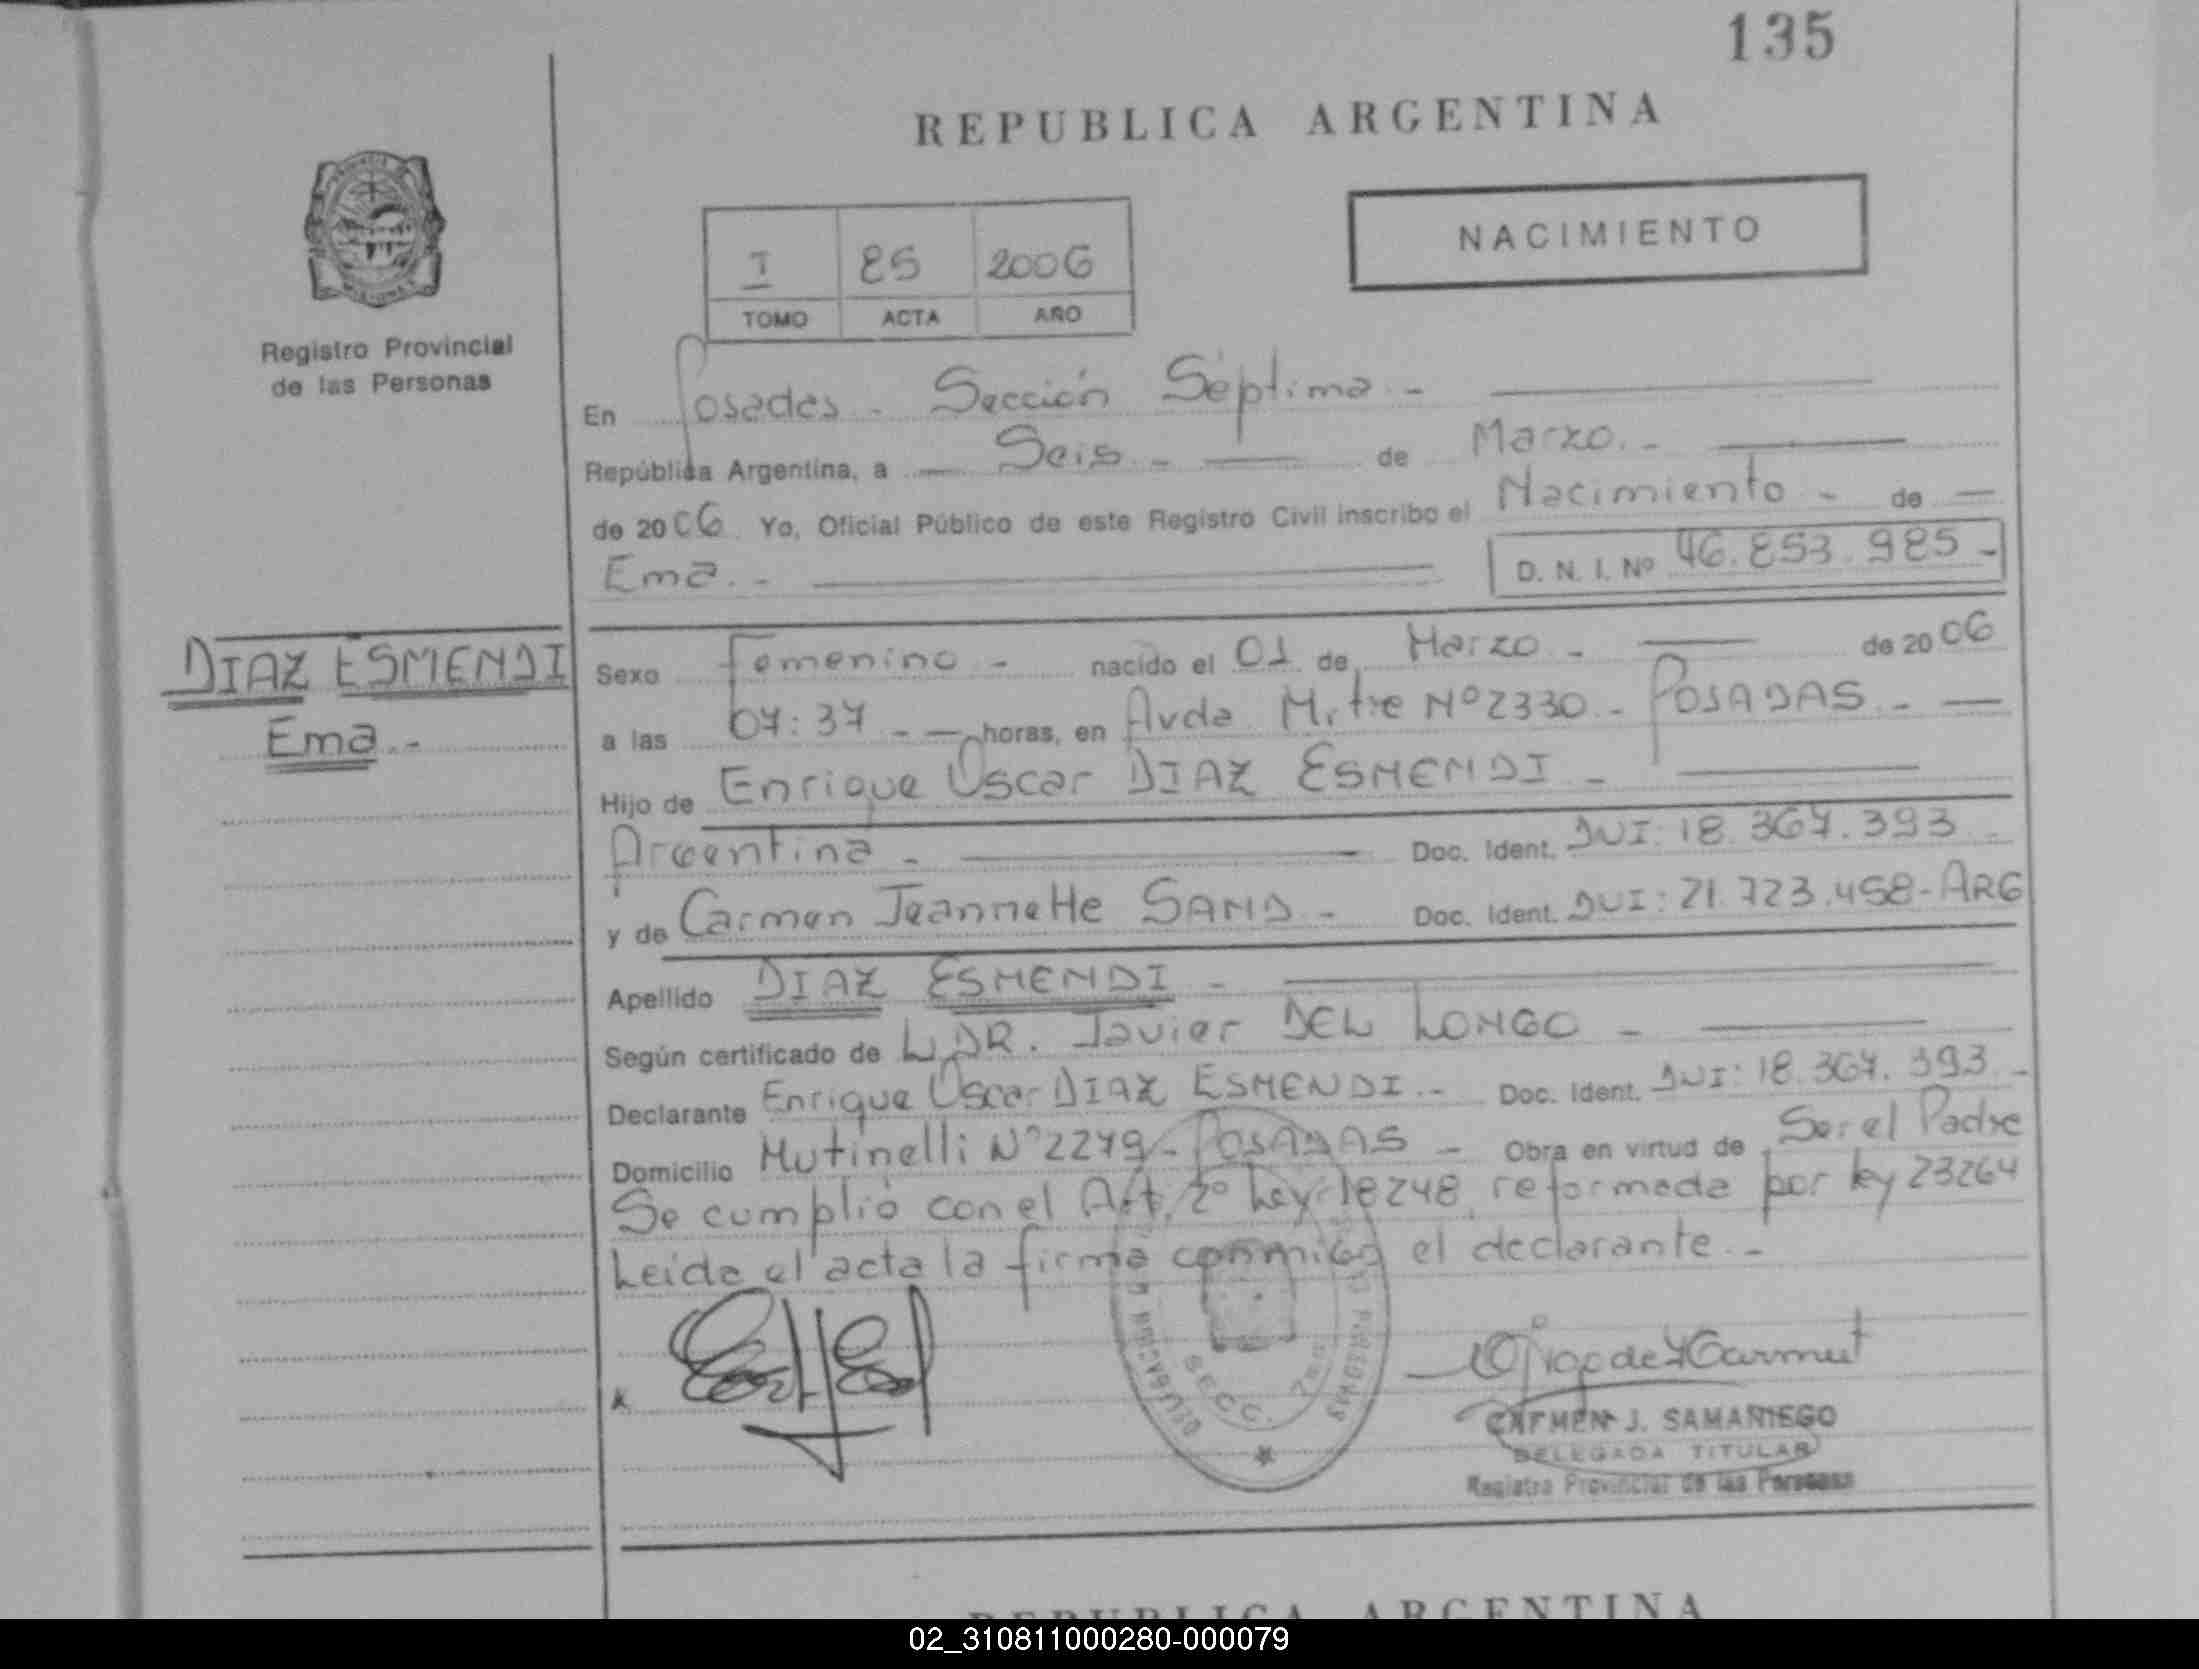 135
REPUBLICA ARGENTINA
NACIMIENTO
I 85 2006
TOMO ACTA AÑO
Registro Provincial
de las Personas
En Posadas - Sección Séptima. -
República Argentina, a - Seis. - de Marzo. -
de 2006 Yo, Oficial Público de este Registro Civil inscribo el Nacimiento - de -
Ema. - D. N. I. Nº 46.853.985 -
DIAZ ESMENDI
Ema. -
Sexo Femenino - nacido el 01 de Marzo - de 2006
a las 07:37 - - horas, en Avda Mitre Nº 2330 - POSADAS - -
Hijo de Enrique Oscar DIAZ ESMENDI -
Argentina - Doc. Ident. DNI: 18.367.393 -
y de Carmen Jeannette SAND - Doc. Ident. DNI: 21.723.458-ARG
Apellido DIAZ ESMENDI -
Según certificado de L DR. Javier DEL LONGO -
Declarante Enrique Oscar DIAZ ESMENDI. - Doc. Ident. DNI: 18.367.393. -
Domicilio Mutinelli Nº 2279 - POSADAS - Obra en virtud de Ser el Padre
Se cumplió con el Art. 2º Ley 18248 reformada por ley 23264
Leida el acta la firma conmigo el declarante. -
SECC. 7ma
CARMEN J. SAMANIEGO
DELEGADA TITULAR
Registro Provincial de las Personas
REPUBLICA ARGENTINA
02_310811000280-000079